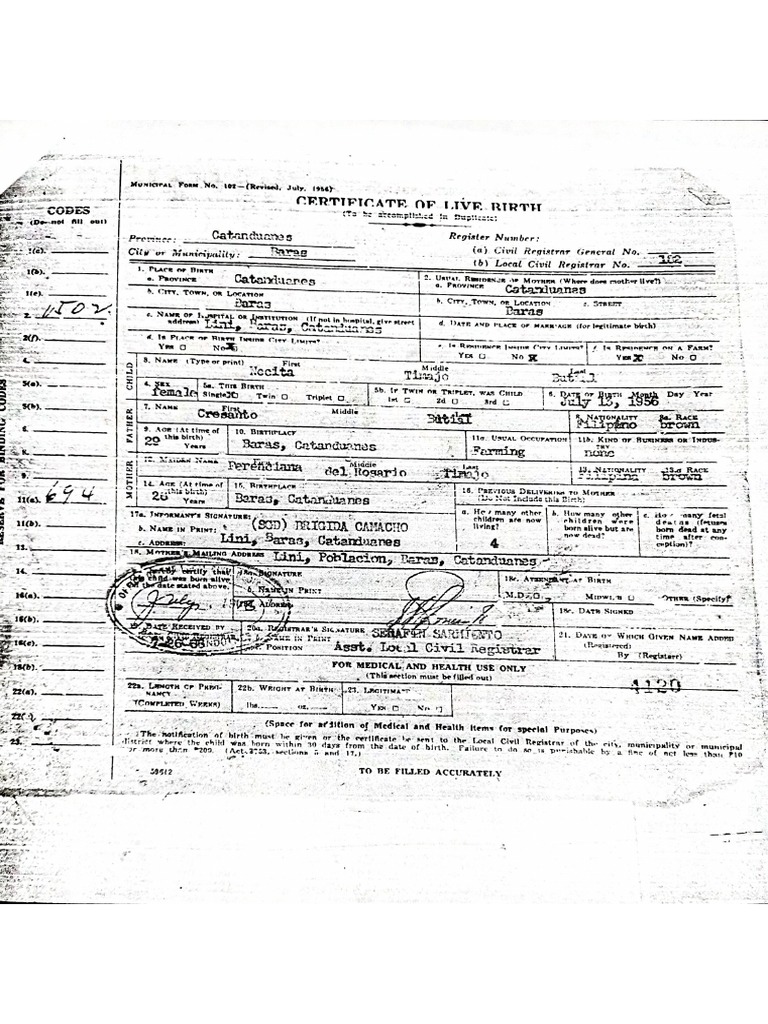 MUNICIPAL FORM No. 102—(Revised, July, 1956)
CERTIFICATE OF LIVE BIRTH
(To be accomplished in Duplicate)
CODES
(Do not fill out)
Province: Catanduanes
Register Number:
City or Municipality: Baras
(a) Civil Registrar General No.
(b) Local Civil Registrar No. 182
1. PLACE OF BIRTH
a. PROVINCE Catanduanes
2. USUAL RESIDENCE OF MOTHER (Where does mother live?)
a. PROVINCE Catanduanes
b. CITY, TOWN, OR LOCATION Baras
b. CITY, TOWN, OR LOCATION Baras
c. STREET
c. NAME OF HOSPITAL OR INSTITUTION (If not in hospital, give street address) Lini, Baras, Catanduanes
d. DATE AND PLACE OF MARRIAGE (for legitimate birth)
d. IS PLACE OF BIRTH INSIDE CITY LIMITS?
YES NO X
e. IS RESIDENCE INSIDE CITY LIMITS?
YES NO X
f. IS RESIDENCE ON A FARM?
YES X NO
CHILD
3. NAME (Type or print) First Middle Last
Timajo
4. SEX female
5a. THIS BIRTH
Single X Twin Triplet
5b. IF TWIN OR TRIPLET, WAS CHILD
1st 2d 3rd
6. DATE OF BIRTH Month Day Year
July 1956
FATHER
7. NAME First Middle
Cresanto
8. NATIONALITY Filipino
8a. RACE brown
9. AGE (At time of this birth)
29 Years
10. BIRTHPLACE
Baras, Catanduanes
11a. USUAL OCCUPATION
Farming
11b. KIND OF BUSINESS OR INDUSTRY
none
MOTHER
12. MAIDEN NAME Middle Last
del Rosario Timajo
13. NATIONALITY Filipina
13a. RACE brown
14. AGE (At time of this birth)
28 Years
15. BIRTHPLACE
Baras, Catanduanes
16. PREVIOUS DELIVERIES TO MOTHER
(Do Not Include this Birth)
a. How many other children are now living?
4
b. How many other children were born alive but are now dead?
c. How many fetal deaths (fetuses born dead at any time after conception)?
17a. INFORMANT'S SIGNATURE:
b. NAME IN PRINT: (SGD) BRIGIDA CAMACHO
c. ADDRESS: Lini, Baras, Catanduanes
18. MOTHER'S MAILING ADDRESS Lini, Poblacion, Baras, Catanduanes
I hereby certify that this child was born alive on the date stated above.
SIGNATURE
b. NAME IN PRINT
ADDRESS
18c. ATTENDANT AT BIRTH
M.D. MIDWIFE OTHER (Specify)
18e. DATE SIGNED
19. DATE RECEIVED BY
20a. REGISTRAR'S SIGNATURE
b. NAME IN PRINT SERAFIN SARMIENTO
c. POSITION Asst. Local Civil Registrar
21. DATE ON WHICH GIVEN NAME ADDED
(Registered)
By (Registrar)
FOR MEDICAL AND HEALTH USE ONLY
(This section must be filled out)
4120
22a. LENGTH OF PREGNANCY
(COMPLETED WEEKS)
22b. WEIGHT AT BIRTH
lbs. oz.
23. LEGITIMATE
YES NO
(Space for addition of Medical and Health items for special Purposes)
The notification of birth must be given or the certificate be sent to the Local Civil Registrar of the city, municipality or municipal
district where the child was born within 30 days from the date of birth. Failure to do so is punishable by a fine of not less than P10
or more than P200. (Act 3753, sections 5 and 17.)
TO BE FILLED ACCURATELY